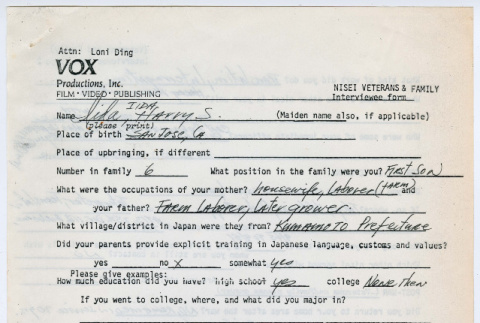 Attn: Loni Ding
VOX
Productions, Inc.
FILM · VIDEO · PUBLISHING
NISEI VETERANS & FAMILY
Interviewee form
IIDA
Name Iida, Harry S. (Maiden name also, if applicable)
(please print)
Place of birth San Jose, Ca
Place of upbringing, if different
Number in family 6 What position in the family were you? First Son
What were the occupations of your mother? housewife, Laborer (farm) and
your father? Farm Laborer, Later grower.
What village/district in Japan were they from? Kumamoto Prefecture
Did your parents provide explicit training in Japanese language, customs and values?
yes no X somewhat yes
Please give examples:
How much education did you have? high school yes college None then
If you went to college, where, and what did you major in?